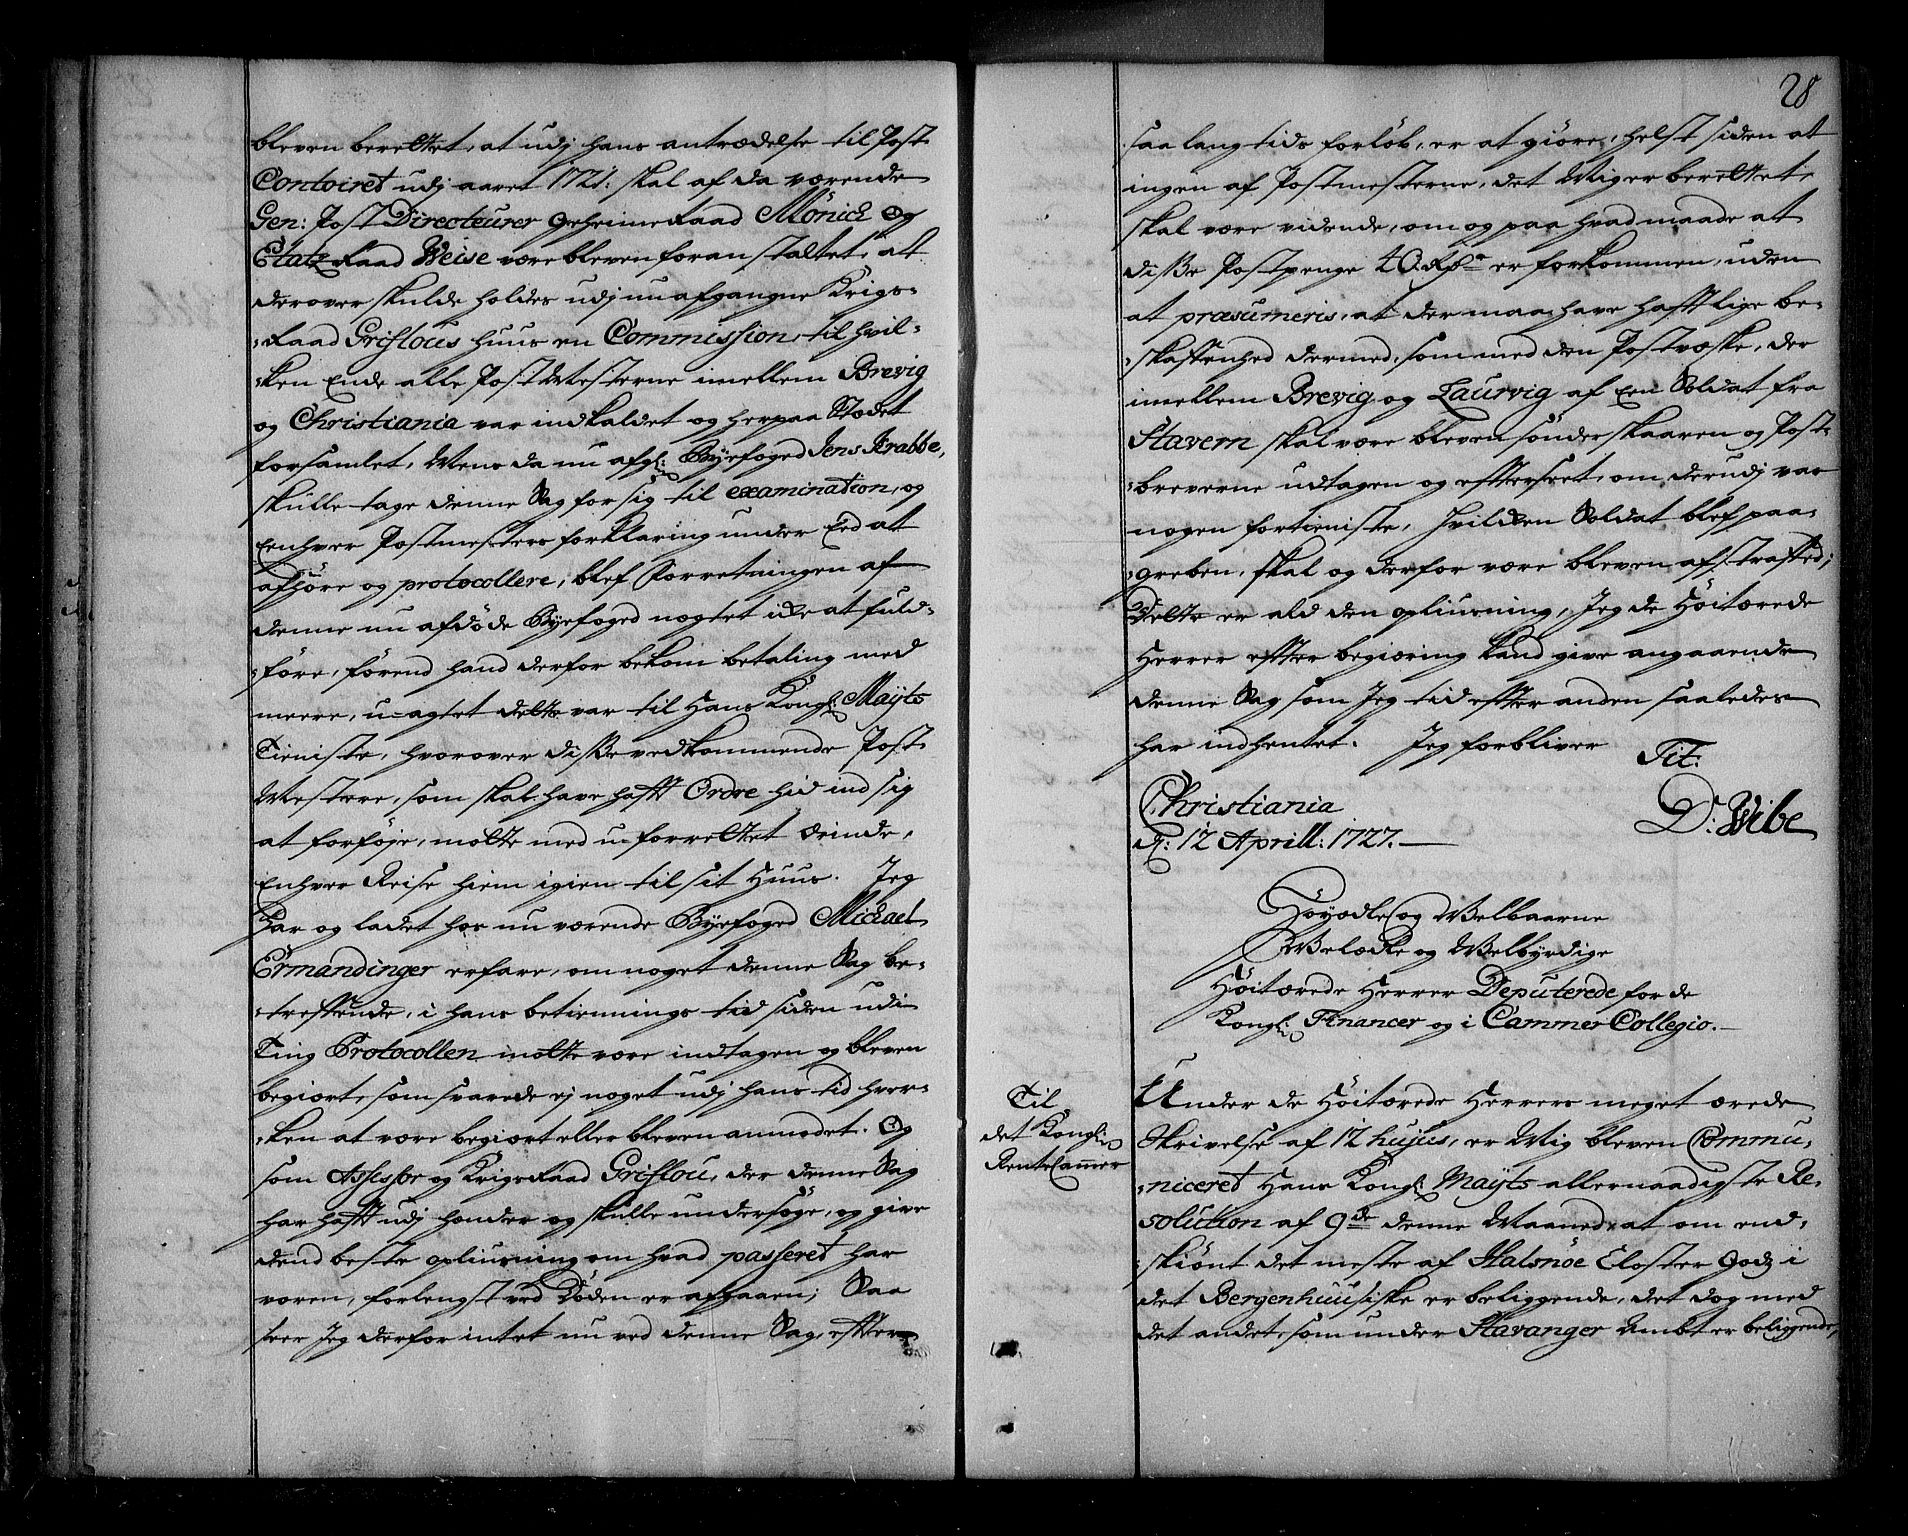 bleven berettet, at udj hans antrædelse til Post
Contoiret udj aaret 1721: skal af da værende
Gen: Post Directeurer Geheime Raad Mönich og
Etatz Raad Weise være bleven foranstaltet, at
derover skulde holdes udj nu afgangne Krigs-
-Raad Grislous Huus en Commission, til hvil-
-ken Ende alle PostMesterne imellem Brevig
og Christiania var indkaldet og herpaa Stædet
forsamlet, Mens da nu afgl: Byefoged Jens Krabbe,
skulle tage denne Sag for sig til examination, og
Eenhver Postmesters forklaring under Eed at
afhøre og protocollere, blef Forretningen af
denne nu afdøde Byefoged nægtet icke at fuld-
-føre, førend hand derfor bekom betaling med
meere, u-agtet dette var til Hans Kongl: Mayts
Tieniste, hvorover disse vedkommende Post
Mestere, som skal have hafft Ordre hid ind sig
at forføje, motte med u-forrettet Ærinde,
Enhver Reise hiem igien til sit Huus. Jeg
har og ladet hos nu værende Byefoged Michael
Ermandinger erfare, om noget denne Sag be-
-treffende, i hans betiennings tid siden udi
Ting Protocollen motte være indtagen og bleven
begiort, som svarede ej noget udj hans tid hver-
-ken at være begiort eller bleven anmodet. Og
som Assessor og Krigs Raad Grislou, der denne Sag
har hafft udj hænder og skulle undersøge, og give
dend beste opliusning om hvad passeret har
voren, forlengst ved Døden er afgaaen; Saa
seer Jeg derfor intet nu ved denne Sag, efter
28
saa lang tids forløb, er at giøre, helst siden at
ingen af Postmesterne, det Mig er berettet,
skal være vidende, om og paa hvad maade at
disse Postpenge 40 Rdr er forkommen, uden
at præsumeris, at der maa have hafft lige be-
-skaffenhed dermed, som med den Postvæske, der
imellem Brevig og Laurvig af Een Soldat fra
Stavern skal være bleven sønderskaaren og Post-
-breverne udtagen og effterseet, om derudj var
nogen fortieniste, Hvilcken Soldat blef paa-
-greben, skal og derfor være bleven afstraffed;
Dette er ald den opliusning, Jeg de Höitærede
Herrer effter begiæring kand give angaaende
denne Sag som Jeg tid effter anden saaledes
har indhentet. Jeg forbliver Tit:
Christiania
d: 12 Aprill: 1727.
D: Wibe
Høyædle og Velbaarne
Velædle og Velbyrdige
Höitærede Herrer Deputerede for de
Kongl: Financer og i Cammer Collegio.
Til
det Kongl:
RenteCammer
Under de Höitærede Herrers meget ærede
Skrivelse af 12 hujus, er Mig bleven Commu-
-niceret Hans Kongl: Mayts allernaadigste Re-
solution af 9de denne Maaned, at om end-
-skiønt det meste af Halsnöe Closter Godz i
det Bergenhuusiske er beliggende, det dog med
det andet, som under Stavanger Ambt er beliggende,